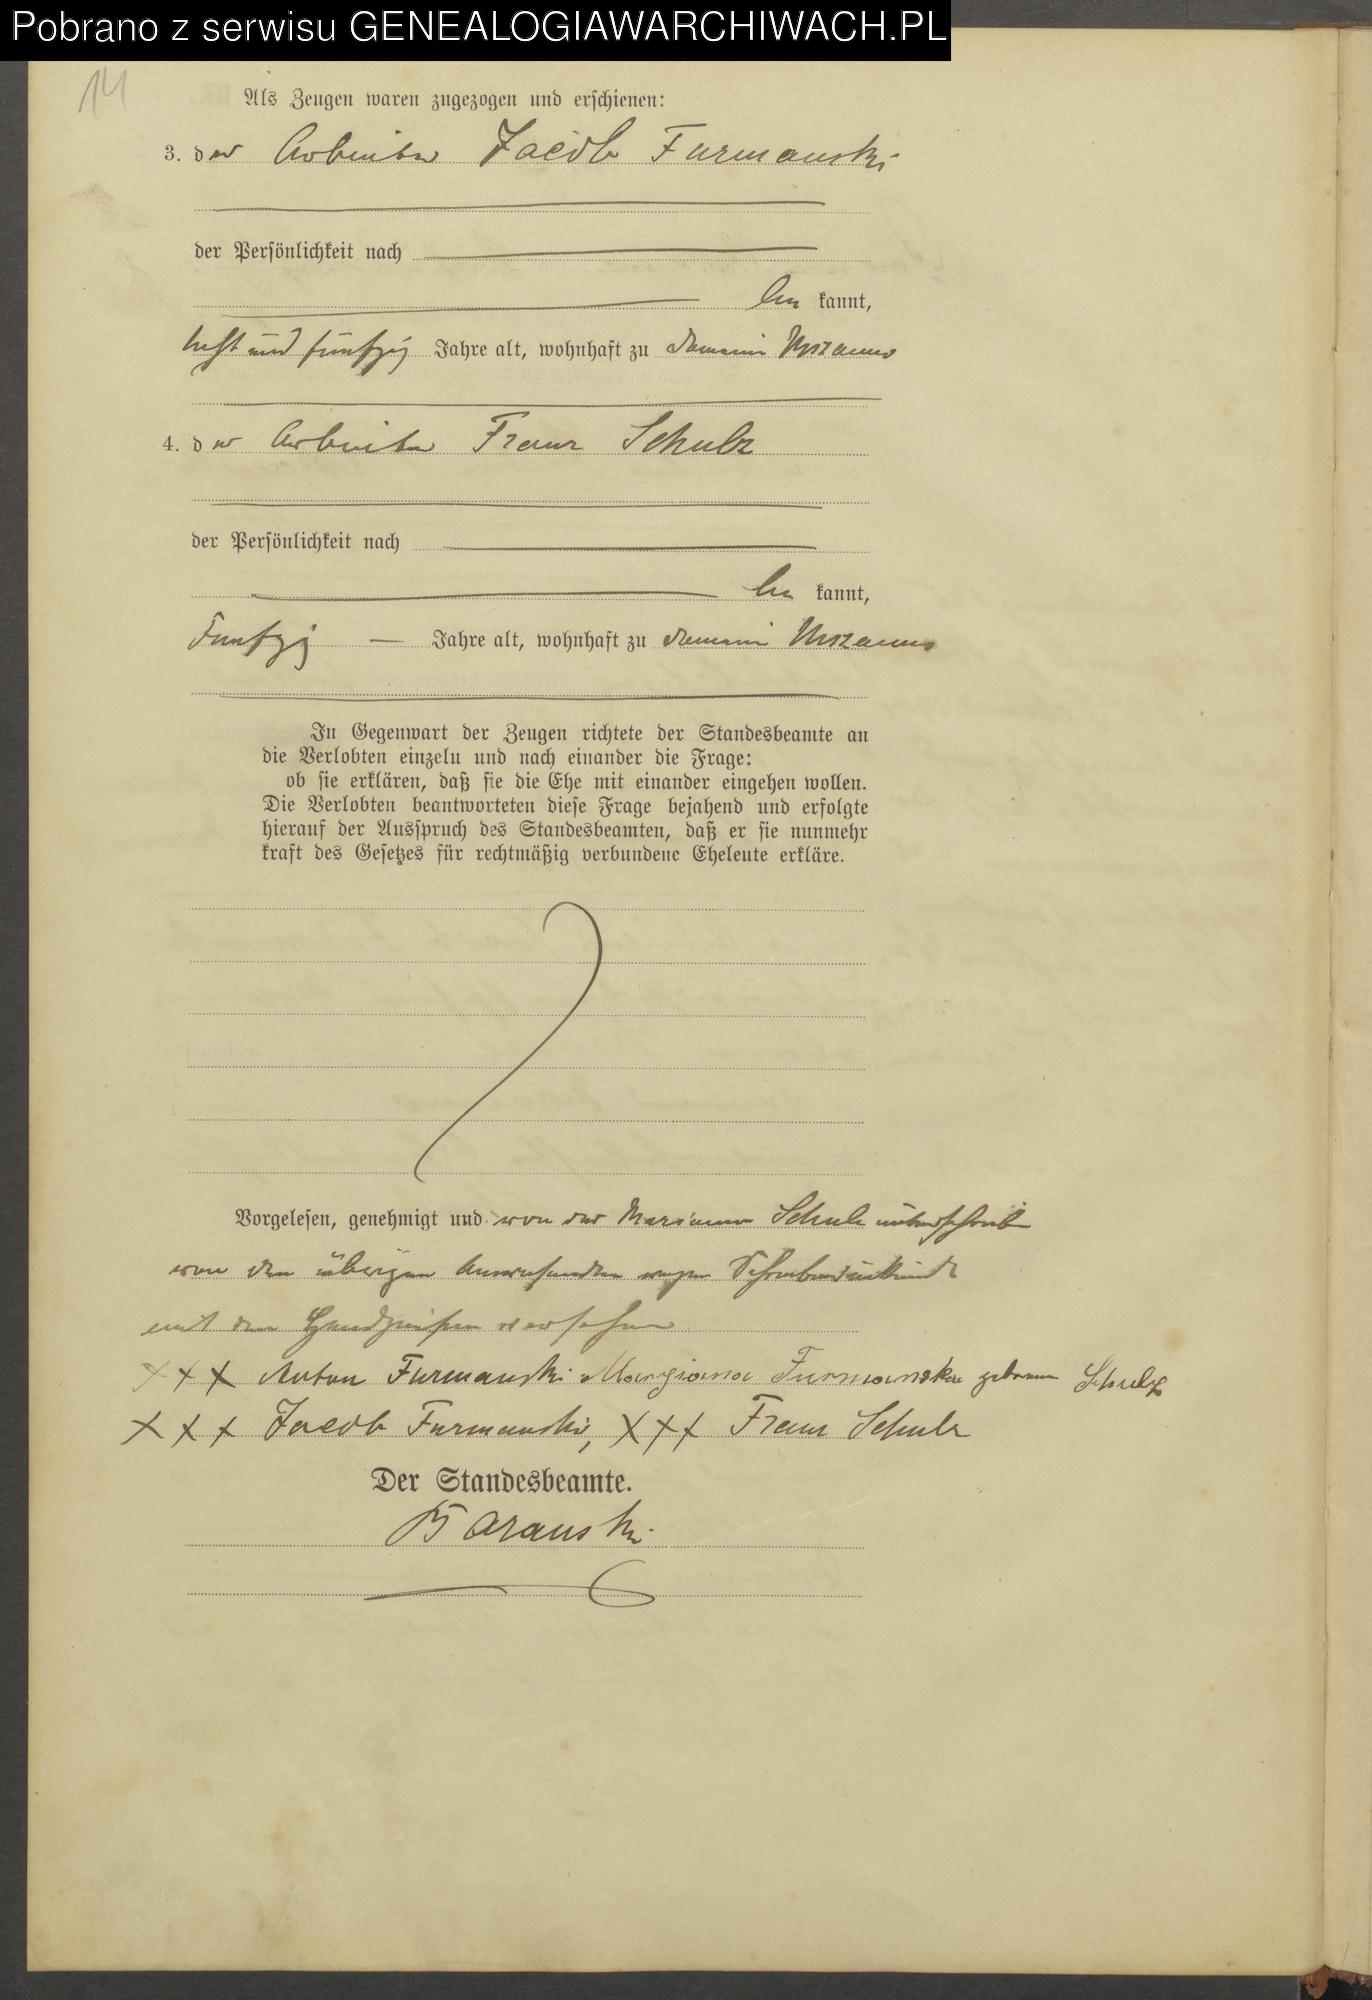 Pobrano z serwisu GENEALOGIAWARCHIWACH.PL
14
Als Zeugen waren zugezogen und erschienen:
3. der Arbeiter Jacob Furmanski
der Persönlichkeit nach
be kannt,
und fünfzig Jahre alt, wohnhaft zu
4. der Arbeiter Franz Schulz
der Persönlichkeit nach
be kannt,
Fünfzig — Jahre alt, wohnhaft zu
In Gegenwart der Zeugen richtete der Standesbeamte an
die Verlobten einzeln und nach einander die Frage:
ob sie erklären, daß sie die Ehe mit einander eingehen wollen.
Die Verlobten beantworteten diese Frage bejahend und erfolgte
hierauf der Ausspruch des Standesbeamten, daß er sie nunmehr
kraft des Gesetzes für rechtmäßig verbundene Eheleute erkläre.
Vorgelesen, genehmigt und von der Marianna Schulz unterschrieben
von den übrigen Anwesenden wegen Schreibensunkunde
mit den Handzeichen versehen
+++ Anton Furmanski Maryianna Furmanska geborene Schulz
+++ Jacob Furmanski, +++ Franz Schulz
Der Standesbeamte.
Baranski